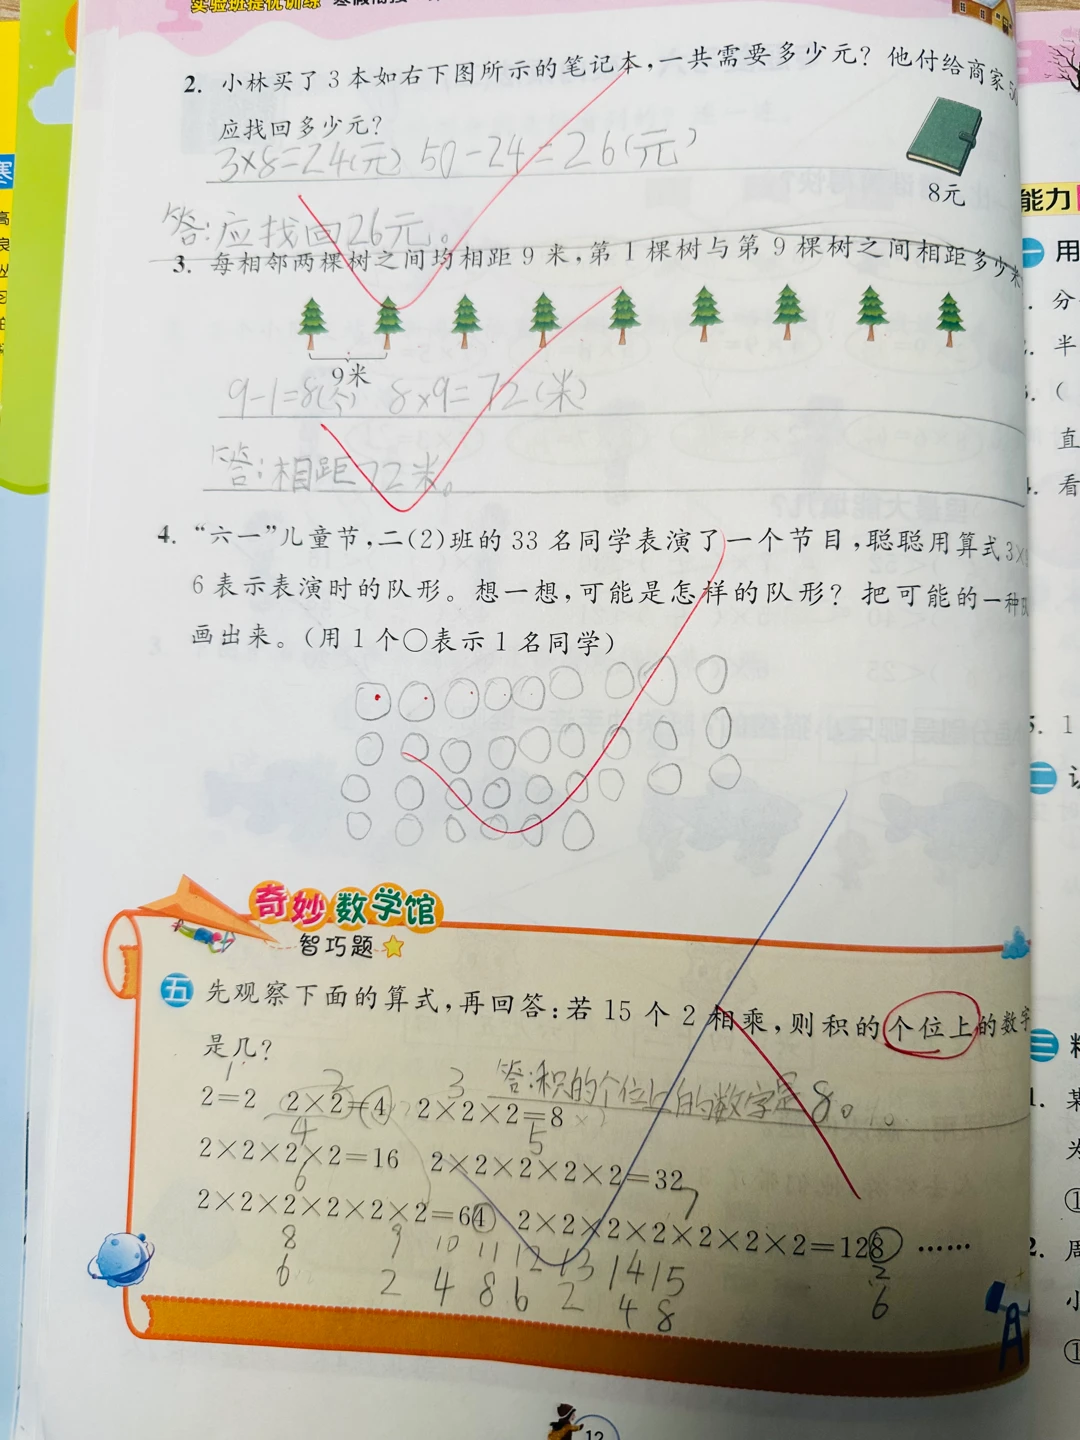 实验班提优训练
2. 小林买了3本如右下图所示的笔记本,一共需要多少元? 他付给商家50
应找回多少元?
3×8=24(元) 50-24=26(元)
8元
答:应找回26元。
3. 每相邻两棵树之间均相距9米,第1棵树与第9棵树之间相距多少米
9米
9-1=8(个) 8×9=72(米)
答:相距72米。
4. “六一”儿童节,二(2)班的33名同学表演了一个节目,聪聪用算式3×
6表示表演时的队形。想一想,可能是怎样的队形? 把可能的一种
画出来。(用1个○表示1名同学)
奇妙数学馆
智巧题
五 先观察下面的算式,再回答:若15个2相乘,则积的个位上的数字
是几?
1 2 3 答:积的个位上的数字是8。
2=2 2×2=4 2×2×2=8
4 5
2×2×2×2=16 2×2×2×2×2=32
6 7
2×2×2×2×2×2=64 2×2×2×2×2×2×2=128 ……
8 9 10 11 12 13 14 15 2
6 2 4 8 6 2 4 8 6
12
能力
一 用
. 分
. 半
. (
直
. 看
5. 1
二
三
1. 某
为
①
2. 周
小
①
寒